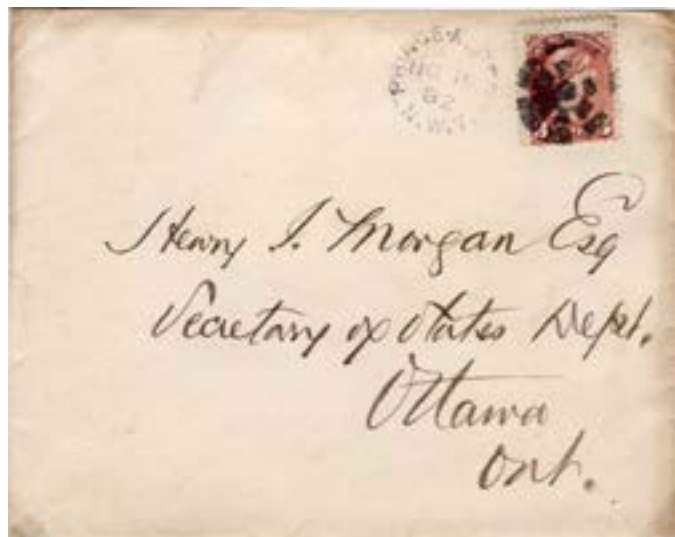 PRINCE ALBERT
82
N.W.T.
Henry J. Morgan Esq
Secretary of States Dept.
Ottawa
Ont.